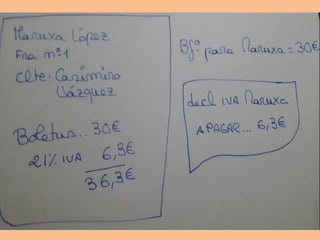 Maruxa López
Fra nº1
Clte: Casimiro
Vázquez
Boletus... 30€
21% IVA 6,3€
36,3€
Bfº para Maruxa = 30€
decl IVA Maruxa
A PAGAR... 6,3€